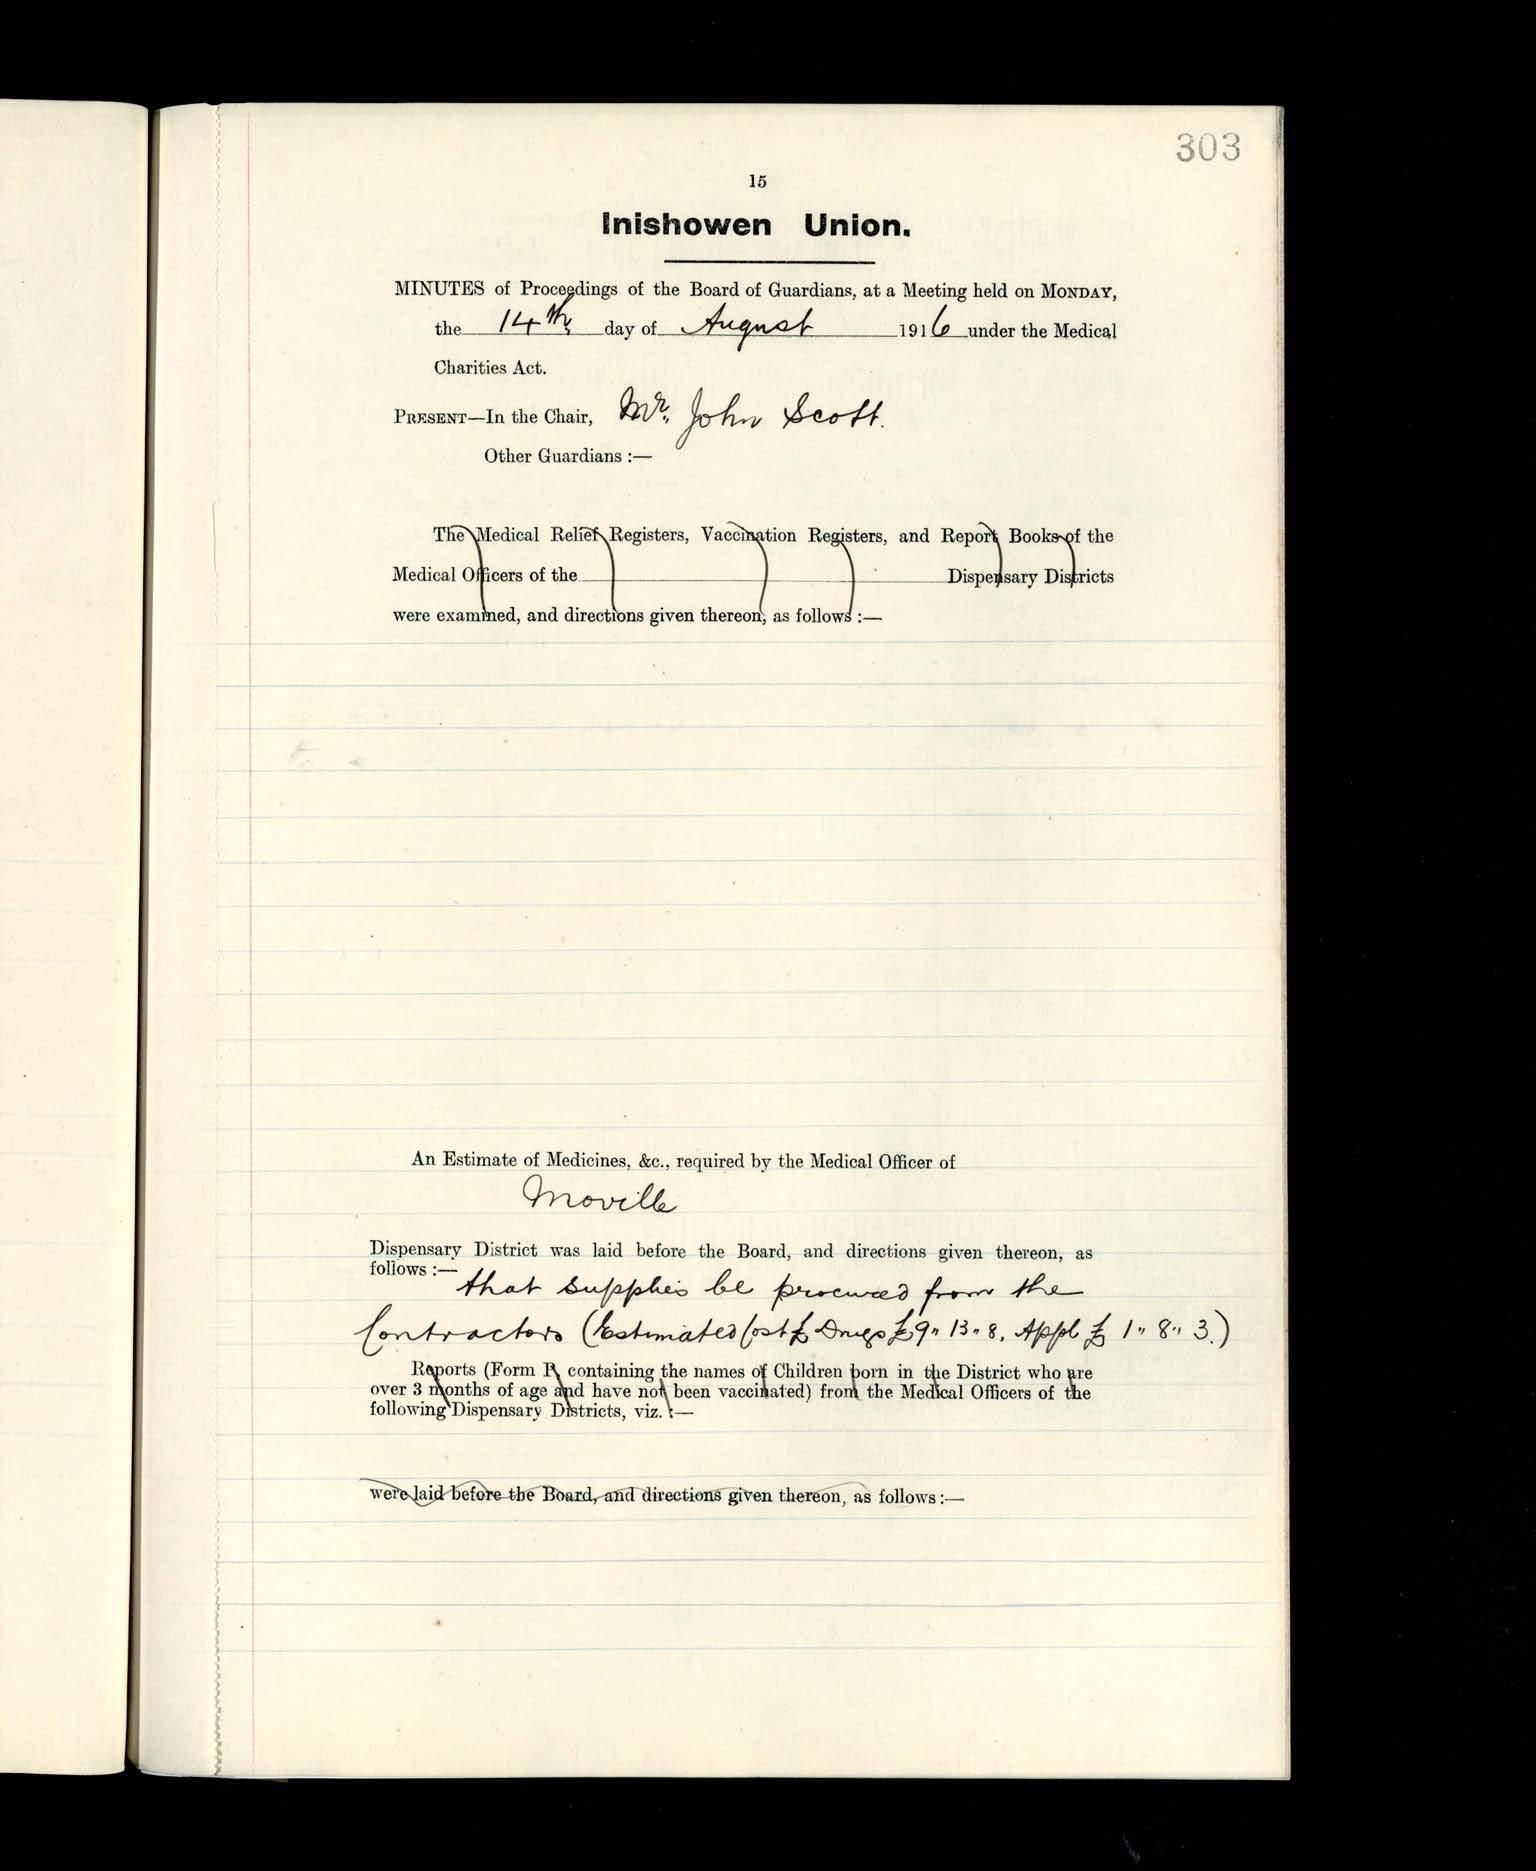 303
15
Inishowen Union.
MINUTES of Proceedings of the Board of Guardians, at a Meeting held on MONDAY,
the 14th day of August 1916 under the Medical
Charities Act.
PRESENT—In the Chair, Mr. John Scott.
Other Guardians :—
The Medical Relief Registers, Vaccination Registers, and Report Books of the
Medical Officers of the Dispensary Districts
were examined, and directions given thereon, as follows :—
An Estimate of Medicines, &c., required by the Medical Officer of
Moville
Dispensary District was laid before the Board, and directions given thereon, as
follows :—
that supplies be procured from the
Contractors (Estimated Cost £ Drugs £9" 13" 8, Appl £ 1" 8" 3.)
Reports (Form P, containing the names of Children born in the District who are
over 3 months of age and have not been vaccinated) from the Medical Officers of the
following Dispensary Districts, viz. :—
were laid before the Board, and directions given thereon, as follows :—